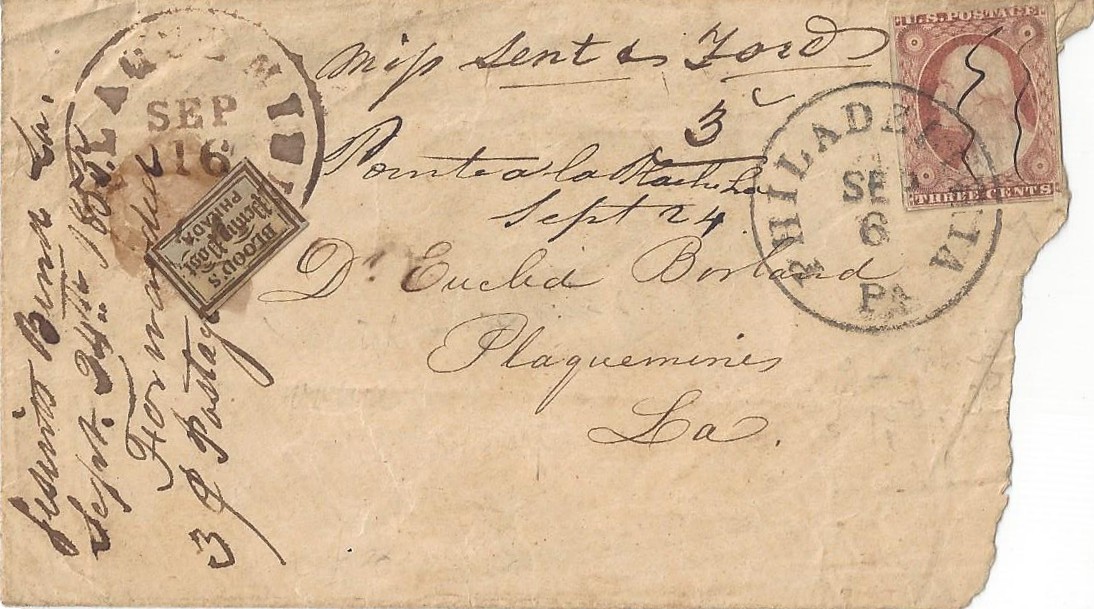 PLAQUEMINE
SEP
16
Miss Sent & Ford
3
Pointe a la Hache La
Sept 24
Dr Euclid Borland
Plaquemines
La.
U.S. POSTAGE
THREE CENTS
PHILADELPHIA
SEP
6
PA
BLOOD'S
Penny Post
PHILADA
Bura La.
Sept. 24th 1855
Forwarded
3 ¢ Postage